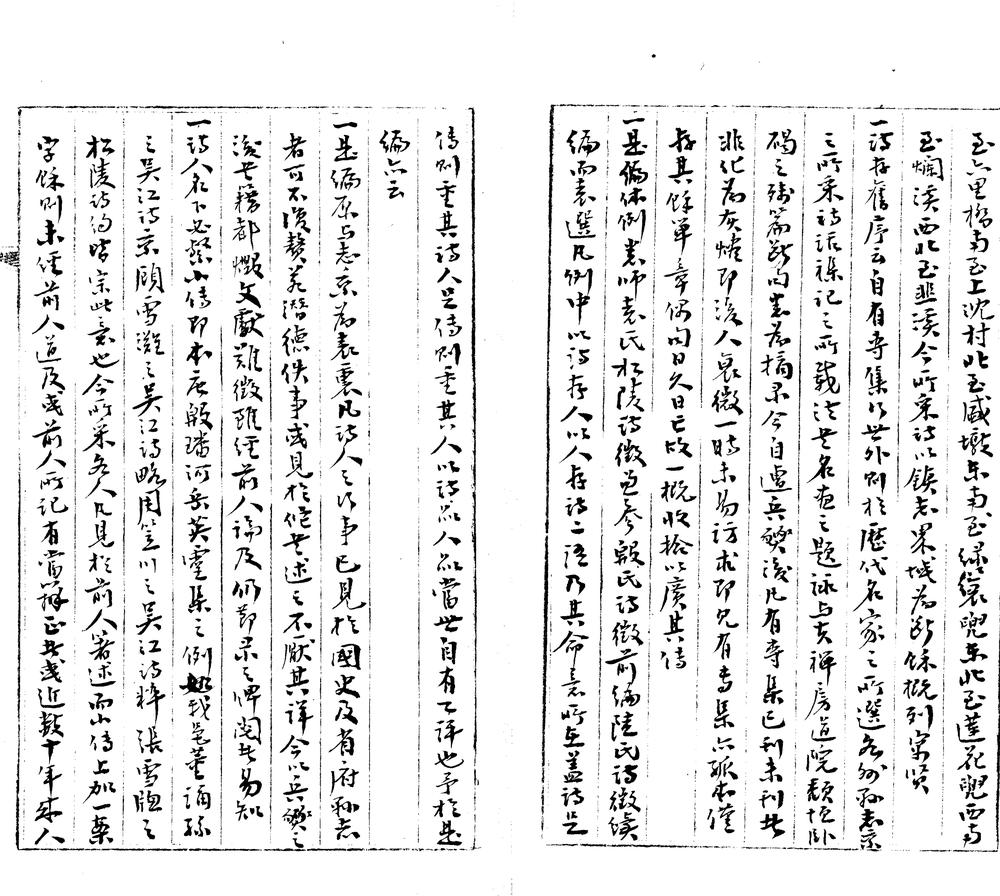 至六里橋南至上沈村北至盛墩東南至綠褱兜東北至蓮花兜西南
至爛溪西北至韭溪今所采詩以鎮志界域為斷餘概列寓賢
一詩存舊序云自有專集行世外則於歷代名家之所選各外縣志乘
之所采詩話襍記之所載注其名画之題詠与夫禅房道院頹垣卧
碣之残篇断句悉為摘录今自遭兵燹後凡有專集已刊未刊者
非化為灰燼即後人衰微一時未易訪求即見有專集亦孤本僅
存其餘單章偶句日久日亡故一概收拾以廣其傳
一是編体例悉師袁氏松陵詩徵兼參殷氏詩徵前編陸氏詩徵續
編而袁選凡例中以詩存人以人存詩二語乃其命意所在蓋詩足
傳則重其詩人足傳則重其人以詩論人論當世自有公評也予於是
編亦云
一是編原与志乘為表裏凡詩人之行事已見於國史及省府縣志
者可不復贅若潛德佚事或見於他書述之不厭其詳今以兵燹之
後書籍都燬文獻難徵雖經前人論及仍節录之俾閱者易知
一詩人名下必繫小傳即本唐殷璠河岳英靈集之例如我邑董誦孫
之吳江詩乘顧雪灘之吳江詩略周笠川之吳江詩粹張雪牕之
松陵詩約皆宗此意也今所采各人凡見於前人著述而小傳上加一案
字餘則未經前人道及或前人所記有當辯正者或近數十年來人